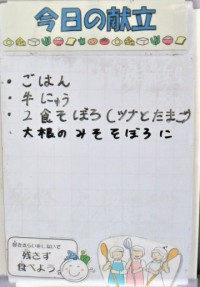 今日の献立
・ごはん
・牛にゅう
・2食そぼろ(ツナとたまご)
・大根のみそそぼろに
好ききらいをしないで
残さず
食べよう